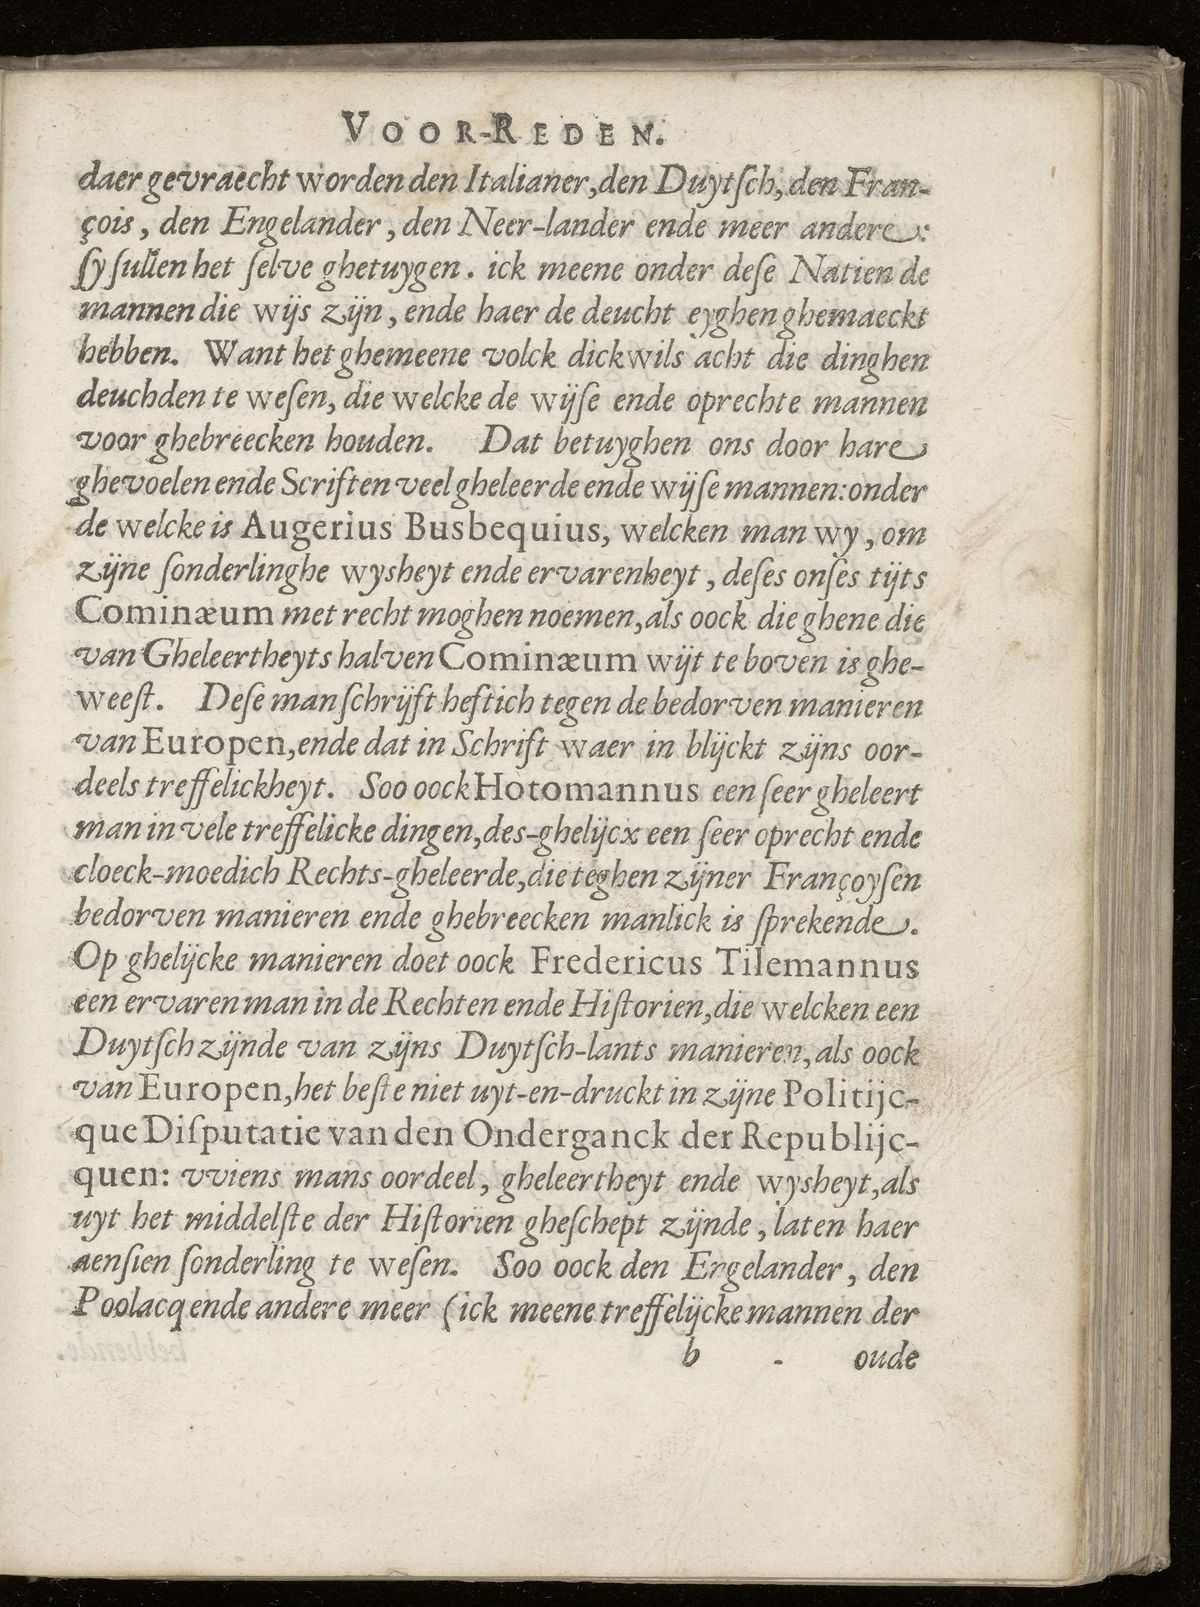 VOOR-REDEN.
daer gevraecht worden den Italianer, den Duytſch, den Fran-
çois, den Engelander, den Neer-lander ende meer andere:
ſy ſullen het ſelve ghetuygen. ick meene onder deſe Natien de
mannen die wijs zijn, ende haer de deucht eyghen ghemaeckt
hebben. Want het ghemeene volck dickwils acht die dinghen
deuchden te weſen, die welcke de wijſe ende oprechte mannen
voor ghebreecken houden. Dat betuyghen ons door hare
ghevoelen ende Scriften veel gheleerde ende wijſe mannen: onder
de welcke is Augerius Busbequius, welcken man wy, om
zijne ſonderlinghe wysheyt ende ervarenheyt, deſes onſes tijts
Cominæum met recht moghen noemen, als oock die ghene die
van Gheleertheyts halven Cominæum wijt te boven is ghe-
weeſt. Deſe man ſchrijft heftich tegen de bedorven manieren
van Europen, ende dat in Schrift waer in blijckt zijns oor-
deels treffelickheyt. Soo oock Hotomannus een ſeer gheleert
man in vele treffelicke dingen, des-ghelijcx een ſeer oprecht ende
cloeck-moedich Rechts-gheleerde, die teghen zijner Françoyſen
bedorven manieren ende ghebreecken manlick is ſprekende.
Op ghelijcke manieren doet oock Fredericus Tilemannus
een ervaren man in de Rechten ende Hiſtorien, die welcken een
Duytſch zijnde van zijns Duytſch-lants manieren, als oock
van Europen, het beſte niet uyt-en-druckt in zijne Politijc-
que Diſputatie van den Onderganck der Republijc-
quen: vviens mans oordeel, gheleertheyt ende wysheyt, als
uyt het middelſte der Hiſtorien gheſchept zijnde, laten haer
aenſien ſonderling te weſen. Soo oock den Ergelander, den
Poolacq ende andere meer (ick meene treffelijcke mannen der
b - oude